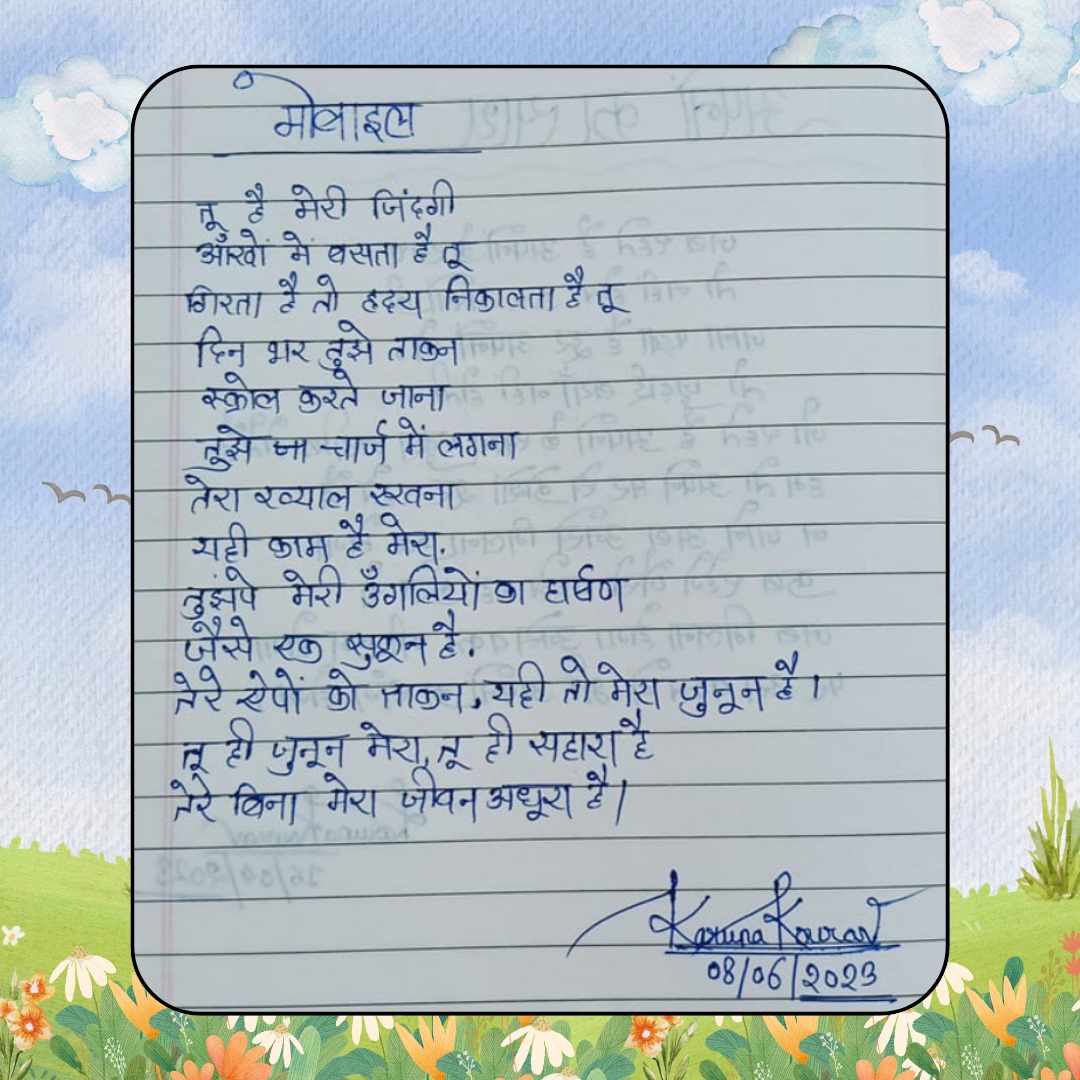 मोबाइल
तू है मेरी जिंदगी
आँखों में बसता है तू
गिरता है तो हृदय निकालता है तू
दिन भर तुझे ताकना
स्क्रोल करते जाना
तुझे जा चार्ज में लगना
तेरा ख्याल रखना
यही काम है मेरा.
तुझपे मेरी उँगलियों का घर्षण
जैसे एक सुकून है.
तेरे ऐपों को ताकन, यही तो मेरा जुनून है।
तू ही जुनून मेरा, तू ही सहारा है
तेरे बिना मेरा जीवन अधूरा है।
Karuna
08/06/2023